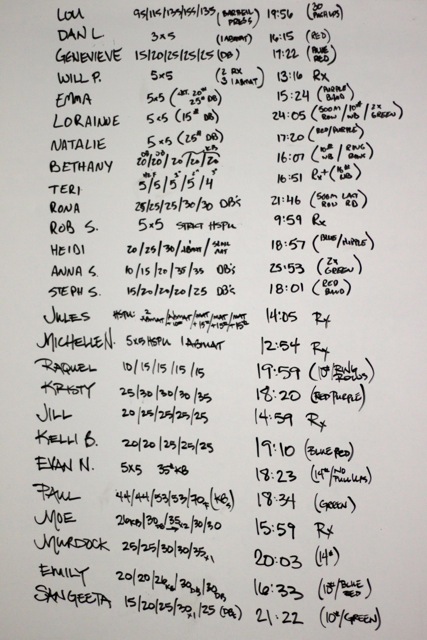 LOU 95/115/135/155/135 (BARBELL PRESS) 19:56 (30 PUSHUPS)
DAN L. 3x5 (1 ABMAT) 16:15 (RED)
GENEVIEVE 15/20/25/25/25 (DB) 17:22 (BLUE RED)
WILL P. 5x5 (2 RX 3 1 ABMAT) 13:16 Rx
EMMA 5x5 (20# 25# DB) 15:24 (PURPLE BAND)
LORAINNE 5x5 (15# DB) 24:05 (500M ROW /10# WB / 2x GREEN)
NATALIE 5x5 (25# DB) 17:20 (RED/PURPLE)
BETHANY 20/20/20/20/20 16:07 (10# WB / RING ROWS)
TERI 5/5/5/5/4 16:51 Rx+ (16# WB)
RONA 25/25/25/30/30 DB's 21:46 (500M LAST ROW RD)
ROB S. 5x5 STRICT HSPU 9:59 Rx
HEIDI 20/25/30/ABMAT/ 18:57 (BLUE/PURPLE)
ANNA S. 10/15/20/35/35 DB's 25:53 (2x GREEN)
STEPH S. 15/20/20/20/25 DB's 18:01 (RED BAND)
JULES HSPU: 14:05 Rx
MICHELLE N. 5x5 HSPU 1 ABMAT 12:54 Rx
RAQUEL 10/15/15/15/15 19:59 (10#/RING ROWS)
KRISTY 25/30/30/30/35 18:20 (RED/PURPLE)
JILL 20/25/25/25/25 14:59 Rx
KELLI B. 20/20/25/25/25 19:10 (BLUE RED)
EVAN N. 5x5 35# KB 18:23 (14#/NO PULLUPS)
PAUL 44/44/53/53/70 (KB's) 18:34 (GREEN)
MOE 26KB/30/35x2/30/30 15:59 Rx
MURDOCK 25/25/30/30/35x1 20:03 (14#)
EMILY 20/20/26KB/30DB/30DB 16:33 (10#/BLUE RED)
SANGEETA 15/20/25/30x1/25 (DB) 21:22 (10#/GREEN)